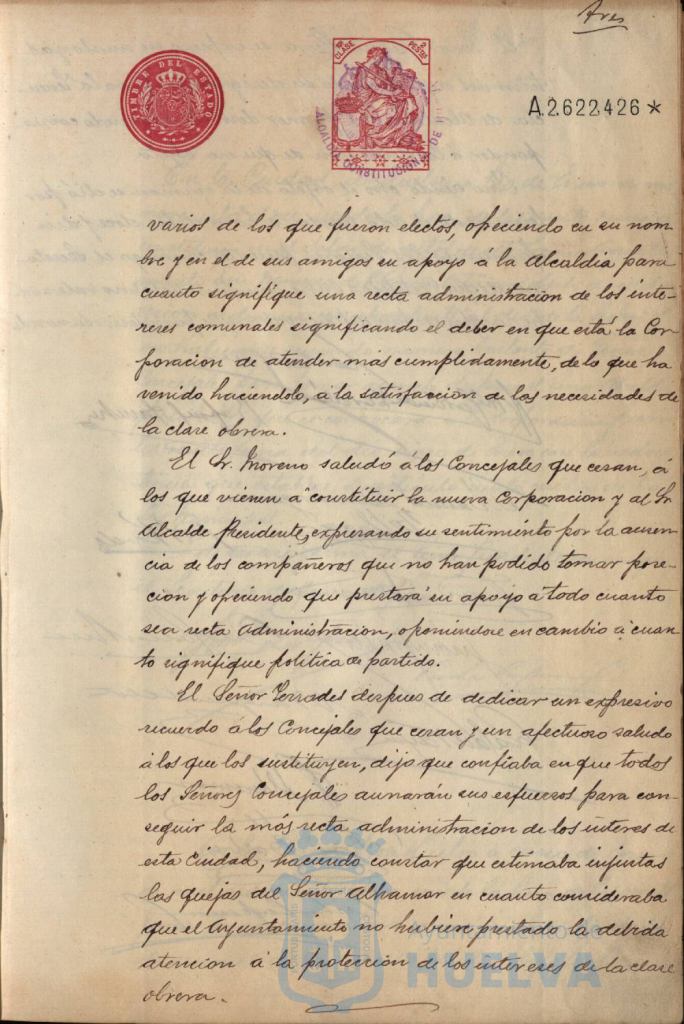 TIMBRE DEL ESTADO
1ª CLASE 2 PESETAS
ALCALDIA CONSTITUCIONAL DE
A.2.622.426 *
varios de los que fueron electos, ofreciendo en su nom-
bre y en el de sus amigos su apoyo á la Alcaldia para
cuanto signifique una recta administracion de los inte-
reses comunales significando el deber en que está la Cor-
poracion de atender más cumplidamente, de lo que ha
venido haciendolo, á la satisfaccion de las necesidades de
la clase obrera.
El Sr. Moreno saludó á los Concejales que cesan, á
los que vienen á constituir la nueva Corporacion y al Sr.
Alcalde Presidente, expresando su sentimiento por la ausen-
cia de los compañeros que no han podido tomar pose-
cion y ofreciendo que prestará su apoyo a todo cuanto
sea recta Administracion, oponiendose en cambio á cuan-
to signifique politica de partido.
El Señor Terrades despues de dedicar un expresivo
recuerdo á los Concejales que cesan y un afectuoso saludo
á los que los sustituyen, dijo que confiaba en que todos
los Señores Concejales aunarán sus esfuerzos para con-
seguir la más recta administracion de los interes de
esta Ciudad, haciendo constar que estimaba injustas
las quejas del Señor Alhamar en cuanto consideraba
que el Ayuntamiento no hubiere prestado la debida
atencion á la proteccion de los intereses de la clase
obrera.
Ayuntamiento de
HUELVA